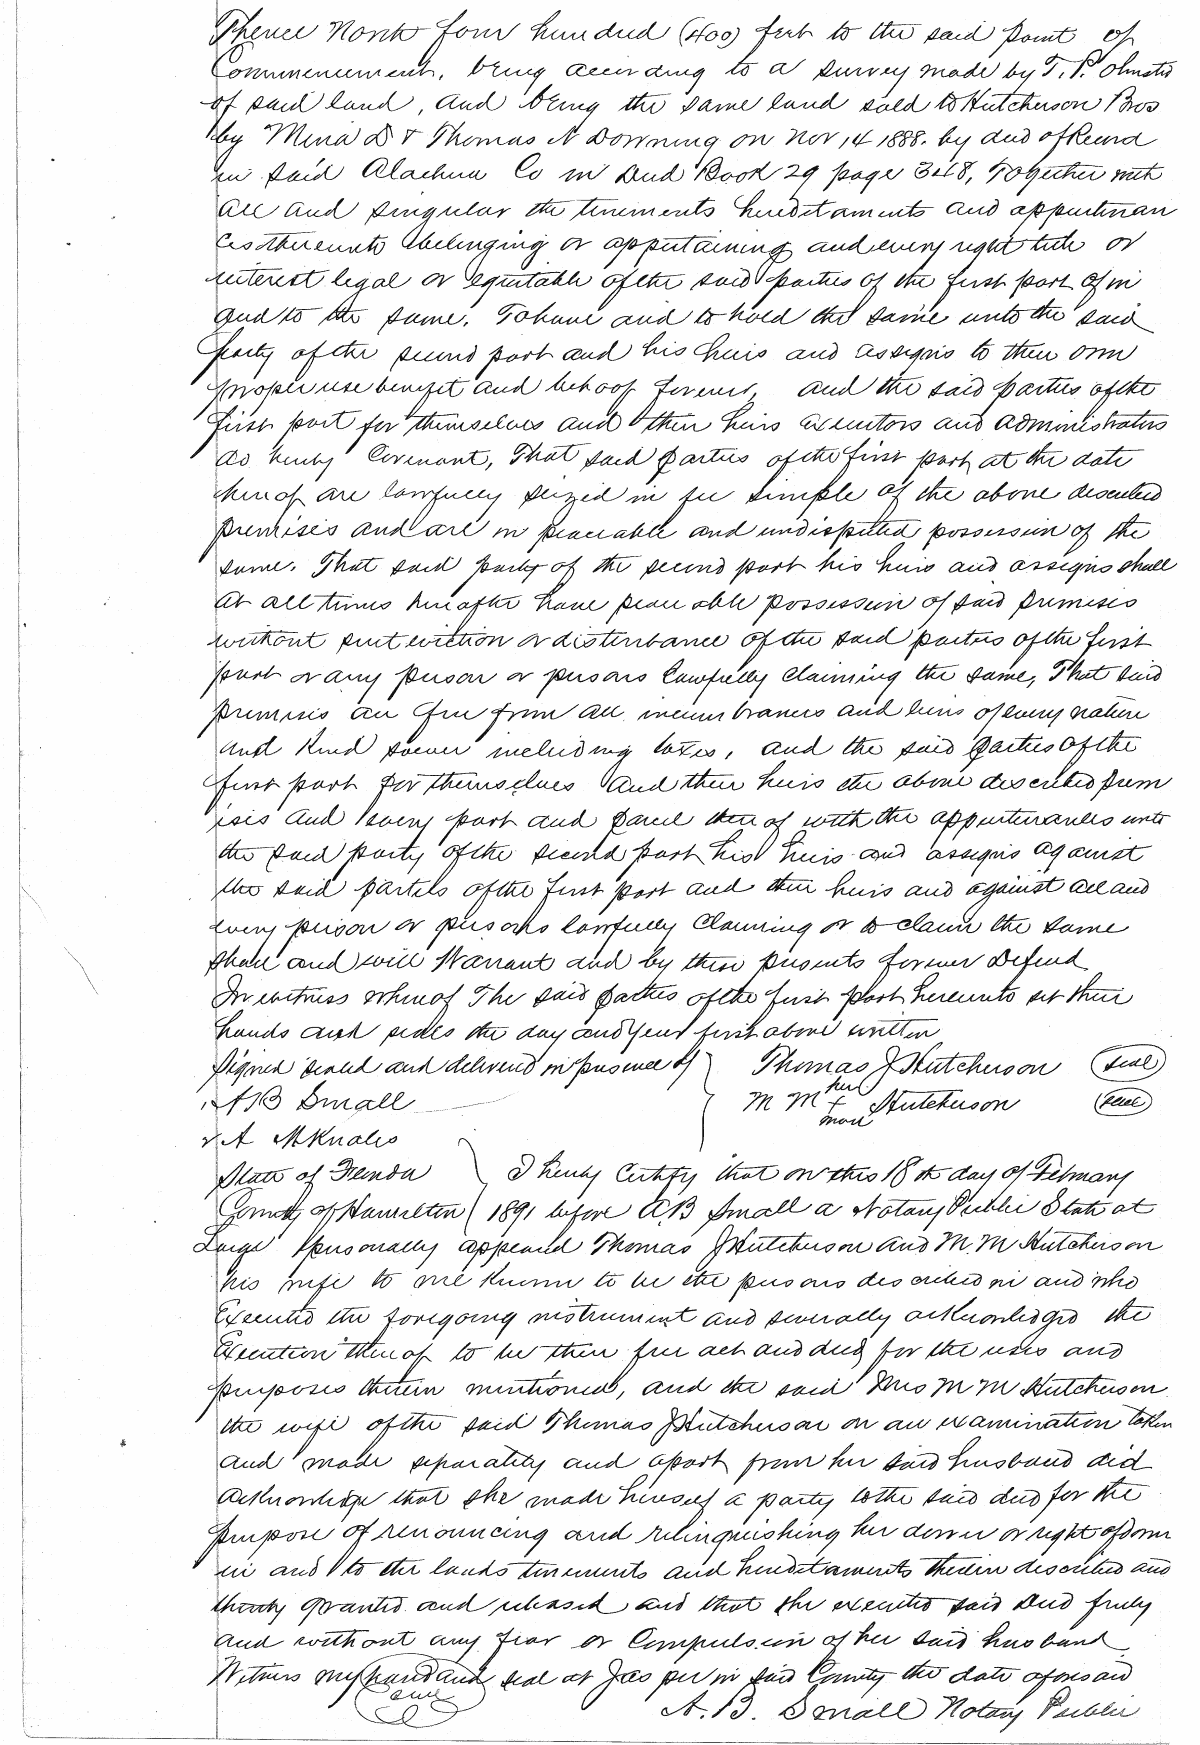 Thence North four hundred (400) feet to the said point of
Commencement, being according to a survey made by T. P. Olmsted
of said land, and being the same land sold to Hutcherson Bros
by Mina D & Thomas N Downing on Nov 14 1888. by deed of Record
in said Alachua Co in Deed Book 29 page 348, Together with
all and singular the tenements hereditaments and appurtenan
ces thereunto belonging or appertaining and every right title or
interest legal or equitable of the said parties of the first part of in
and to the same. To have and to hold the same unto the said
party of the second part and his heirs and assigns to their own
proper use benefit and behoof forever, and the said parties of the
first part for themselves and their heirs executors and administrators
do hereby Covenant, That said parties of the first part at the date
hereof are lawfully seized in fee simple of the above described
premises and are in peaceable and undisputed possession of the
same. That said party of the second part his heirs and assigns shall
at all times hereafter have peaceable possession of said premises
without suit eviction or disturbance of the said parties of the first
part or any person or persons lawfully claiming the same, That said
premises are free from all incumbrances and liens of every nature
and kind soever including taxes, and the said parties of the
first part for themselves and their heirs the above described prem
ises and every part and parcel thereof with the appurtenances unto
the said party of the second part his heirs and assigns against
the said parties of the first part and their heirs and against all and
every person or persons lawfully claiming or to claim the same
shall and will Warrant and by these presents forever Defend
In witness whereof The said parties of the first part hereunto set their
hands and seals the day and year first above written
Signed sealed and delivered in presence of Thomas J Hutcherson (seal)
A B Small M M her x mark Hutcherson (seal)
A McKnales
State of Florida I hereby Certify that on this 18th day of February
County of Hamilton 1891 before A.B Small a Notary Public State at
Large personally appeared Thomas J Hutcherson and M.M Hutcherson
his wife to me known to be the persons described in and who
Executed the foregoing instrument and severally acknowledged the
Execution thereof to be their free act and deed for the uses and
purposes therein mentioned, and the said Mrs M M Hutcherson
the wife of the said Thomas J Hutcherson on an examination taken
and made separately and apart from her said husband did
acknowledge that she made himself a party to the said deed for the
purpose of renouncing and relinquishing her dower or right of dower
in and to the lands tenements and hereditaments therein described and
thereby granted and released and that she executed said Deed freely
and without any fear or Compulsion of her said husband
Witness my hand and seal at Jasper in said County the date aforesaid
seal A. B. Small Notary Public